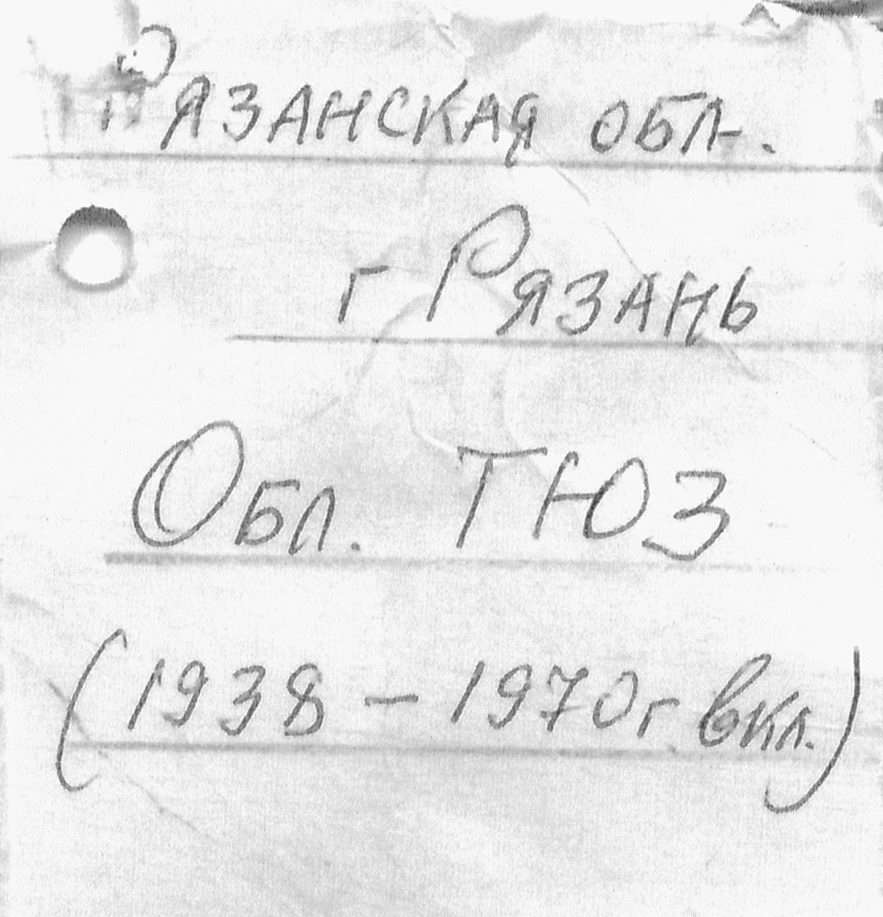 Рязанская обл.
г Рязань
Обл. ТЮЗ
(1938 - 1970г вкл.)